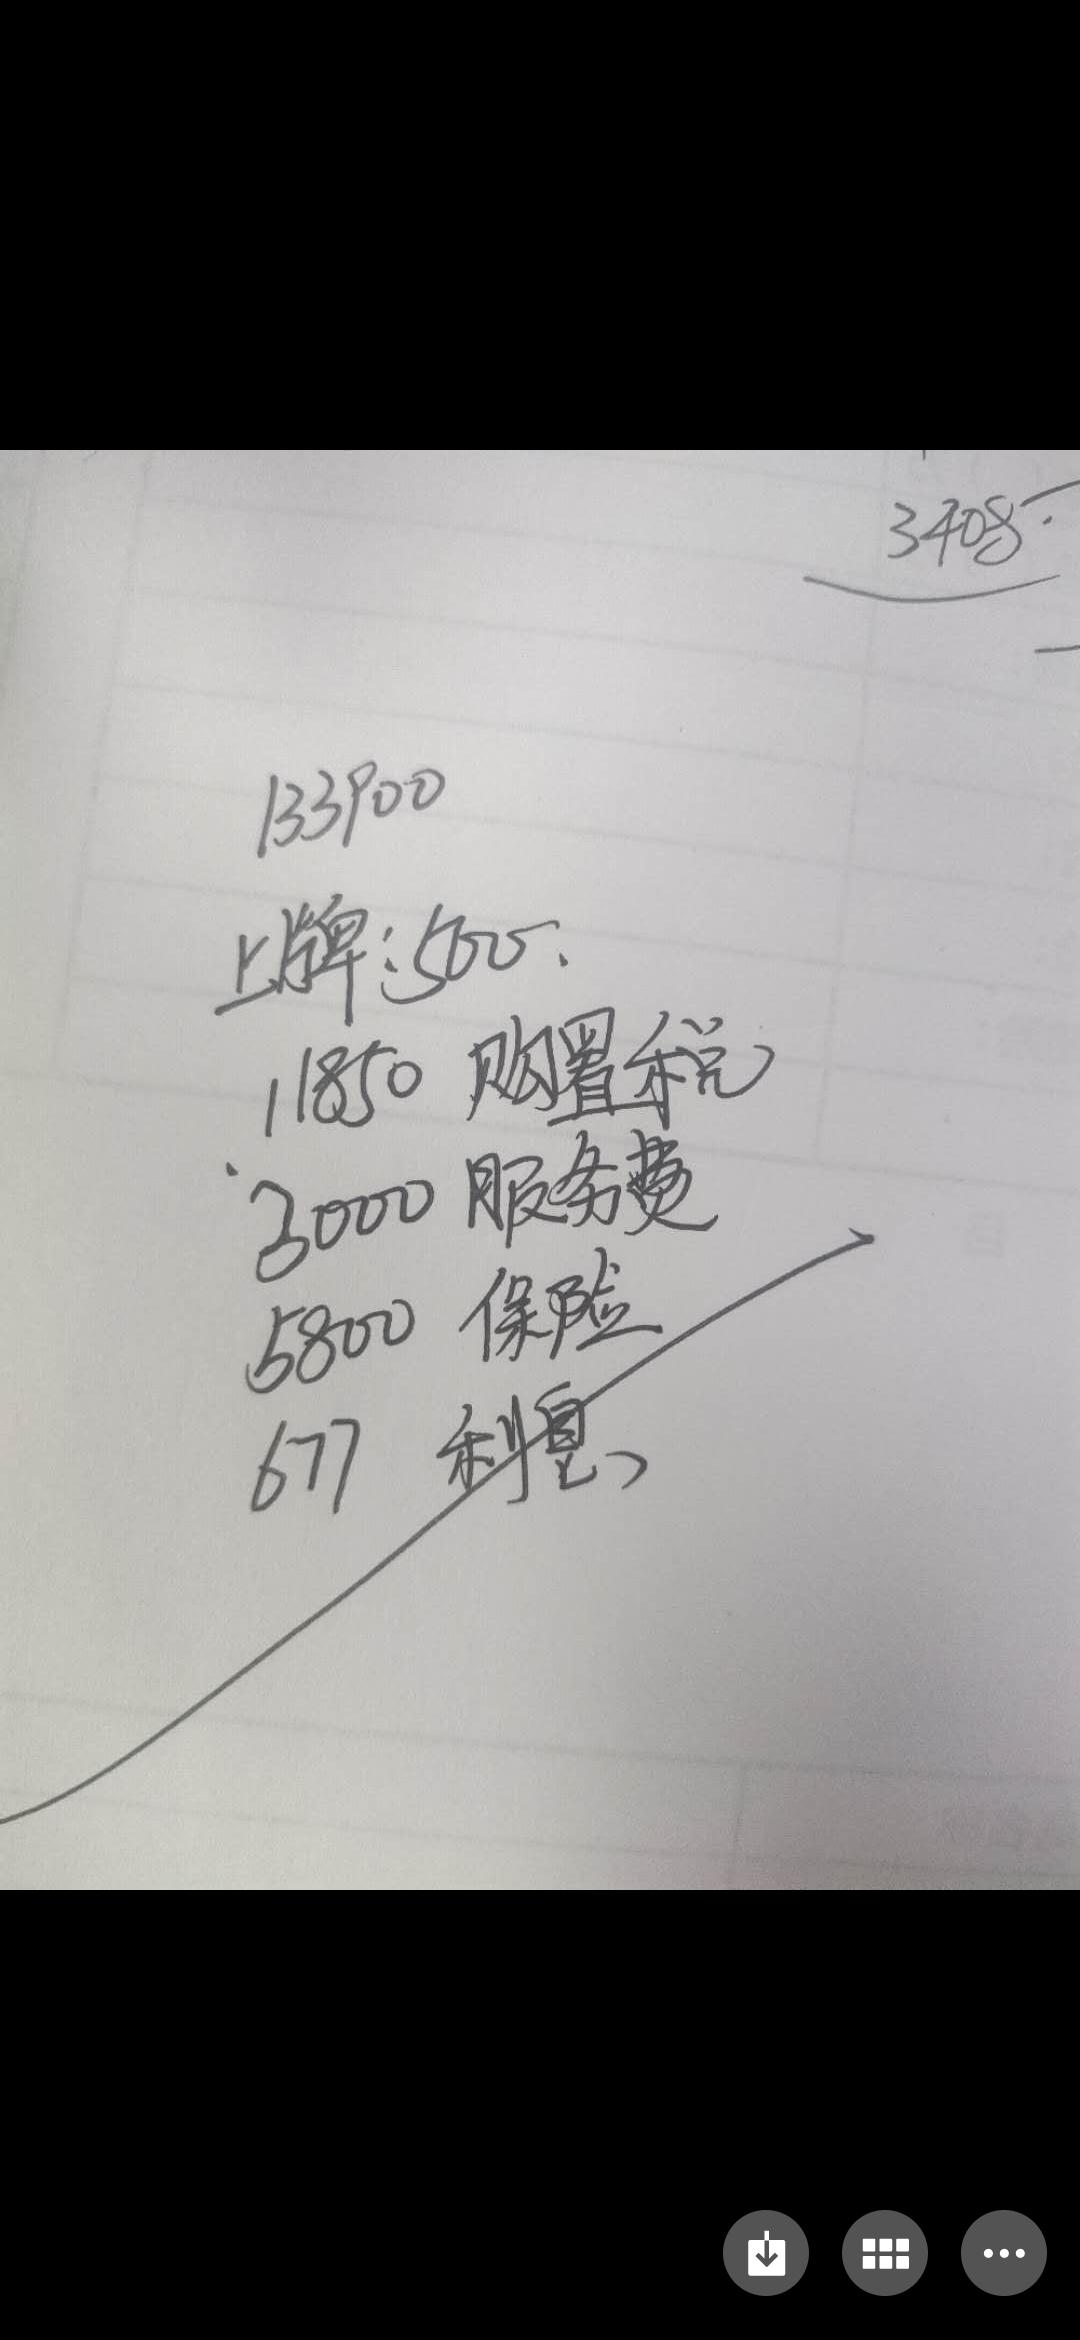 3408.
133900
上牌:500.
11850 购置税
3000 服务费
5800 保险
677 利息